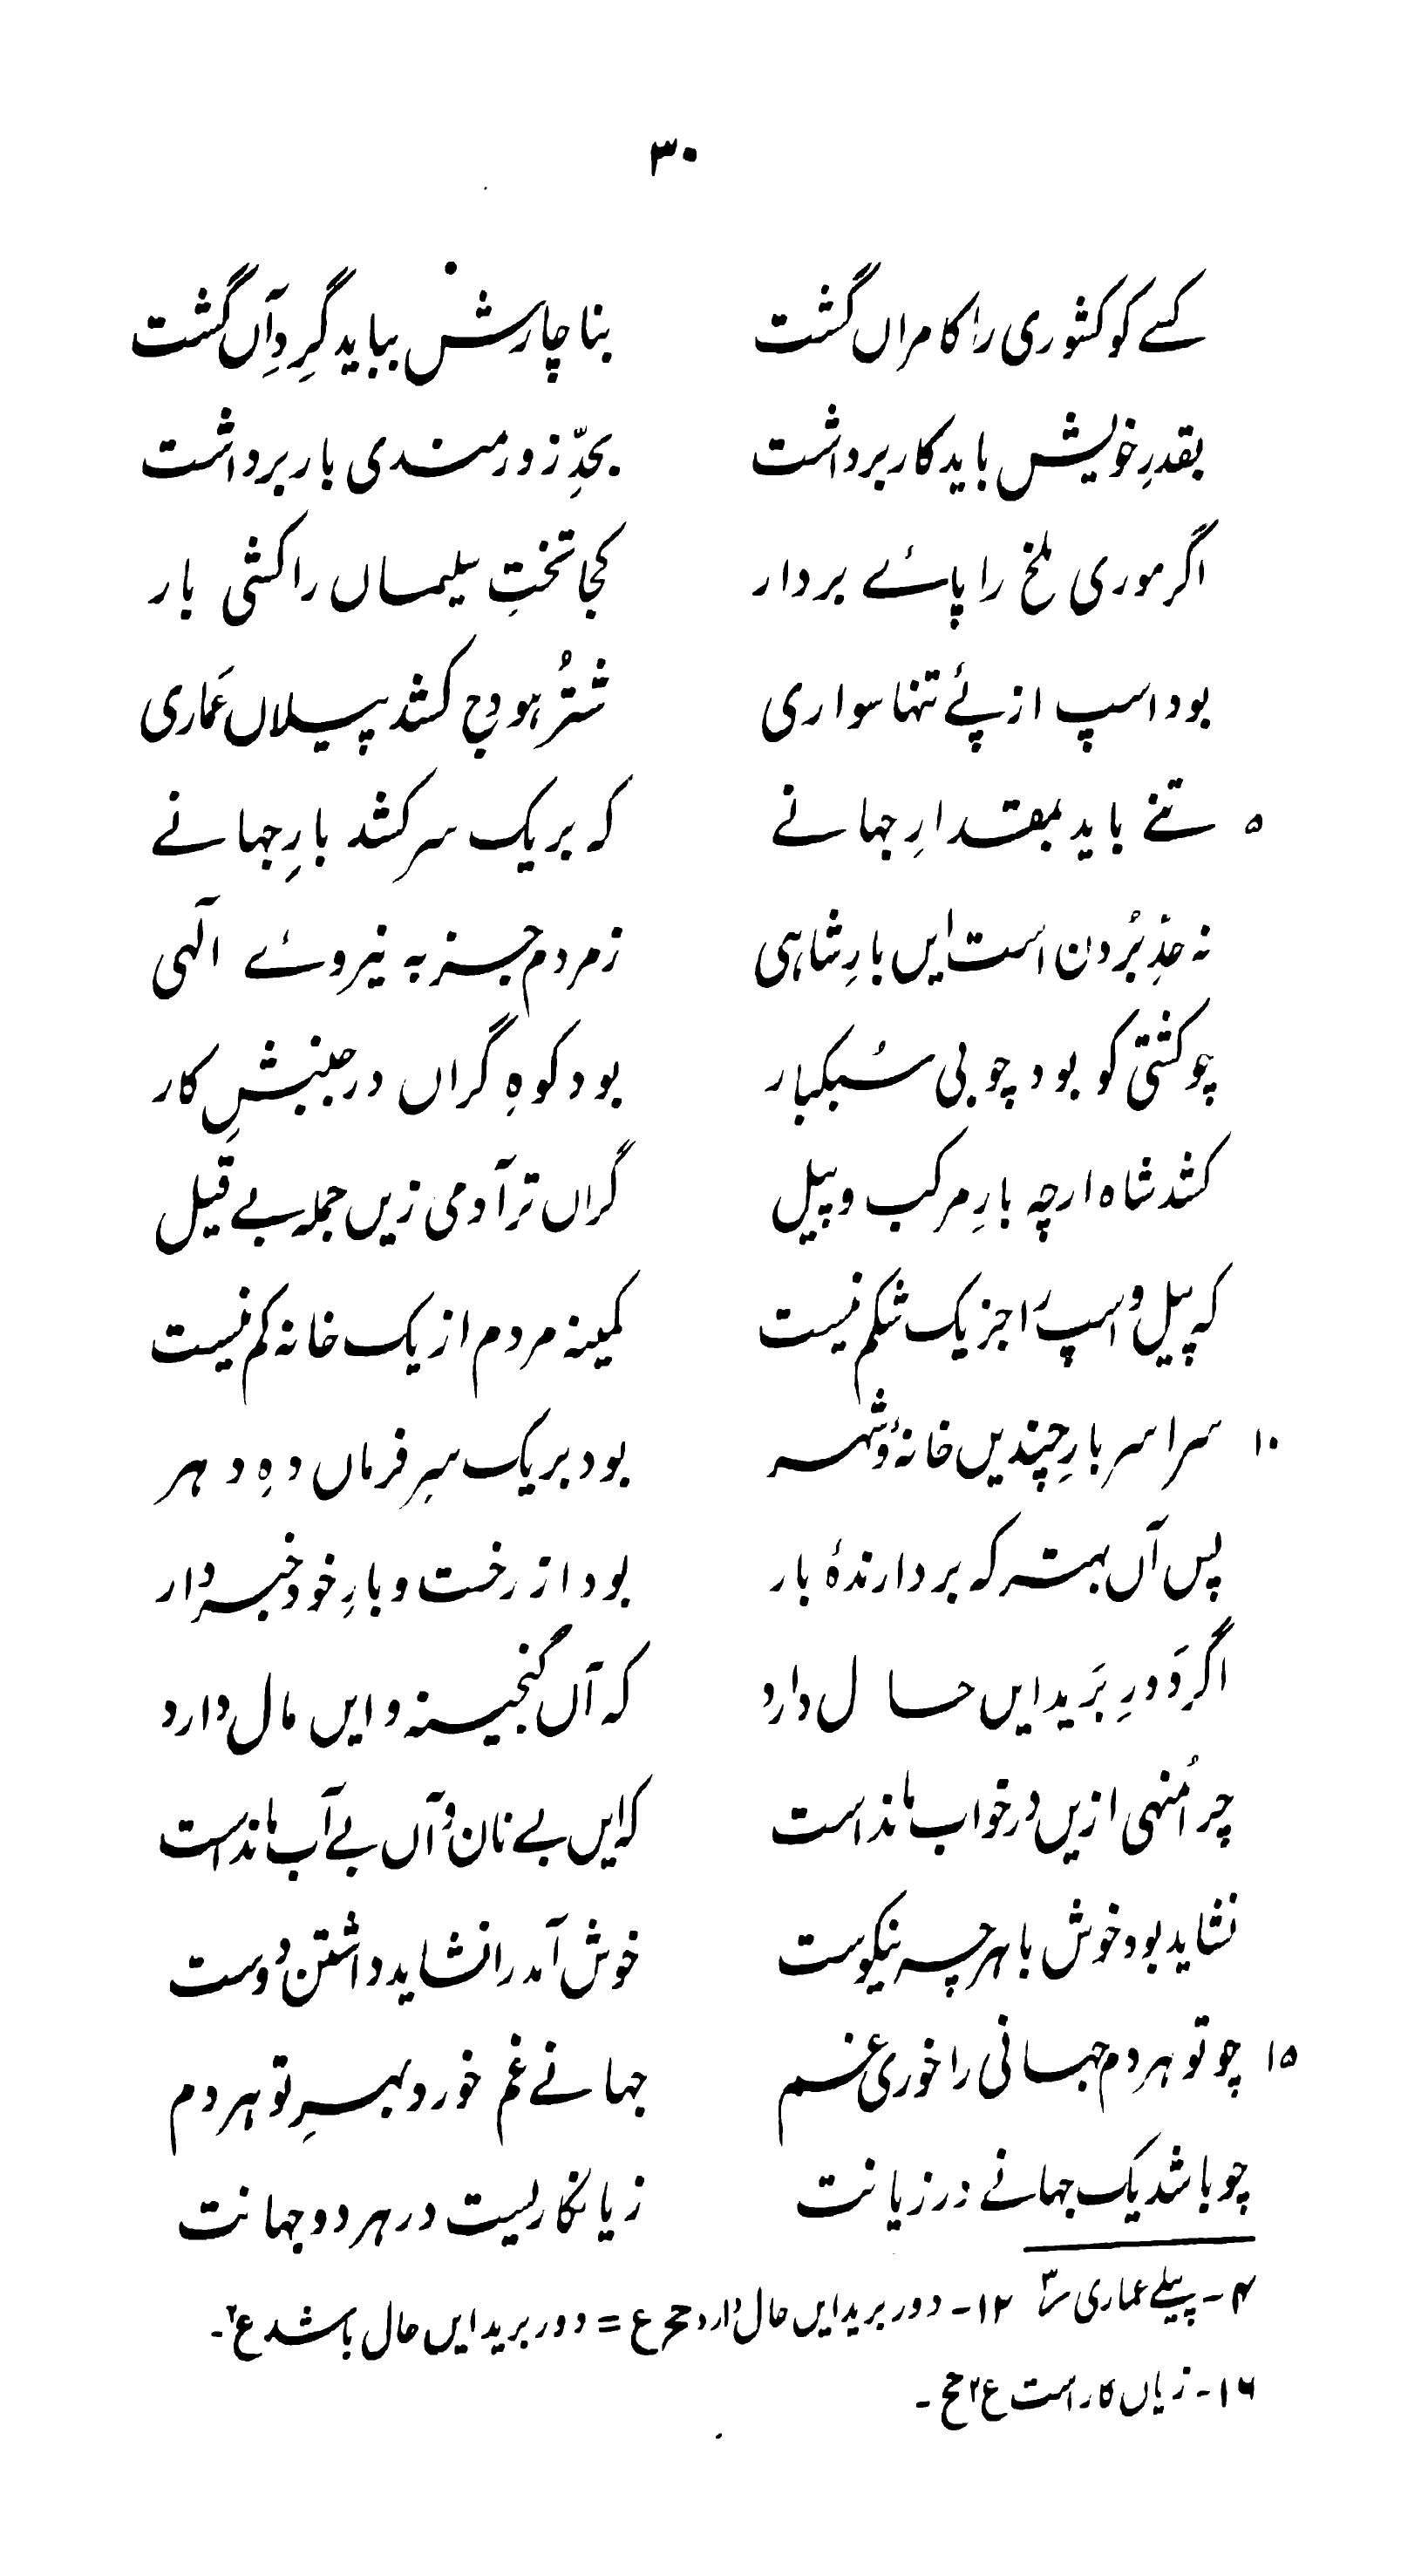 ۳۰
کسے کو کشوری را کامراں گشت بناچارش ببایدگِردِآں گشت
بقدرِ خویش باید کار برداشت بحدِّ زورمندی بار برداشت
اگر موری ملخ را پائے بردار کجا تختِ سلیماں را کشی بار
بود اسپ از پئے تنہا سواری شتُر ہودج کشد پیلاں عَماری
۵ تنے باید بمقدارِ جہانے کہ بریک سر کشد بارِ جہانے
نہ حدِّ بُردن است ایں بارِ شاہی زمردم جز بہ نیروئے الٓہی
چو کشتی کو بود چوبی سُبکبار بود کوہِ گراں در جنبشِ کار
کشد شاہ ارچہ بارِ مرکب و پیل گراں تر آدمی زیں جملہ بے قیل
کہ پیل و اسپ را جز یک شکم نیست کمینہ مردم از یک خانہ کم نیست
۱۰ سراسر بارِ چندیں خانۂ و شہر بود بریک سرِ فرماں دہِ دہر
پس آں بہتر کہ بردارندۂ بار بود از رخت و بارِ خود خبردار
اگر دَورِ بَرید ایں حال دارد کہ آں گنجینہ و ایں مال دارد
چرا مُنہی ازیں در خواب ماندست کہ ایں بے نان و آں بے آب ماندست
نشاید بود خوش باہرچہ نیکوست خوش آمد را نشاید داشتن دوست
۱۵ چو تو ہر دم جہانی را خوری غم جہانے غم خورد بہرِ تو ہر دم
چو باشد یک جہانے در زیانت زیانکاریست در ہر دو جہانت
۴۔ پیلے عماری س۳ ۱۲۔ دور برید ایں حال دارد حح ع = دور برید ایں حال باشد ع۲۔
۱۶۔ زیاں کار است ع۲ حح۔